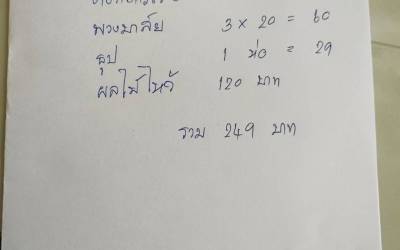 พวงมาลัย 3 × 20 = 60
ธูป 1 ห่อ = 29
ผลไม้ไหว้ 120 บาท
รวม 249 บาท